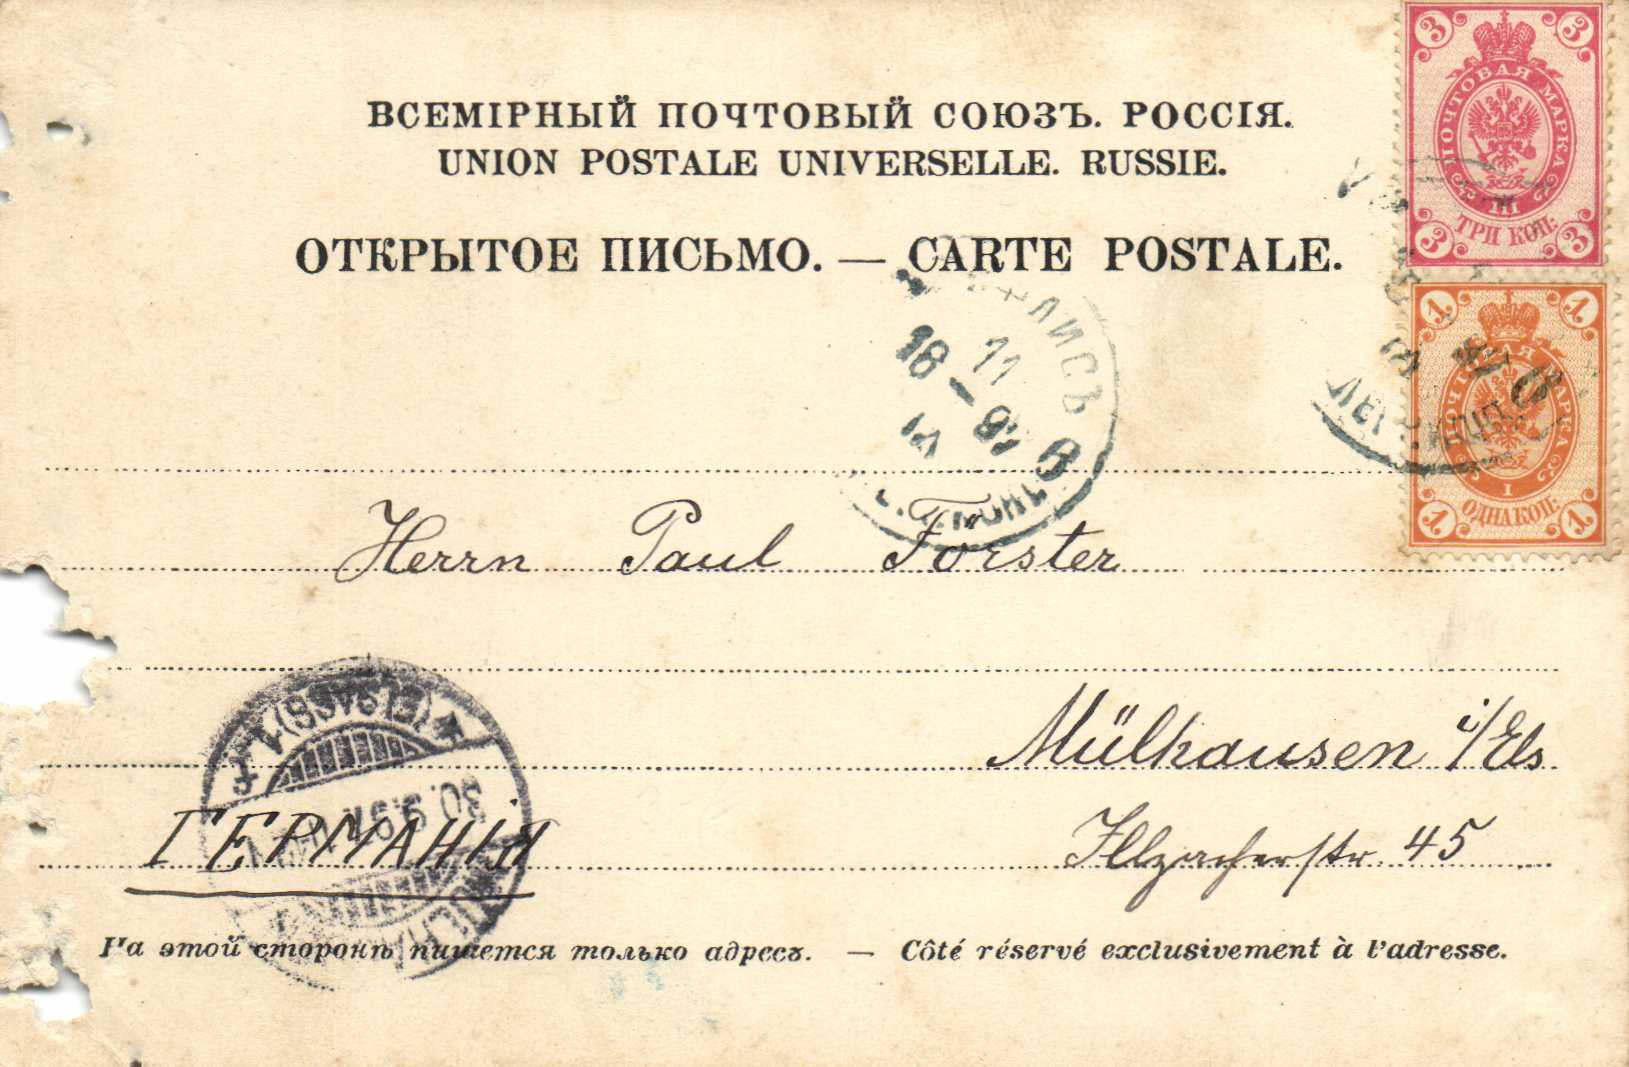 ВСЕМІРНЫЙ ПОЧТОВЫЙ СОЮЗЪ. РОССІЯ.
UNION POSTALE UNIVERSELLE. RUSSIE.
ОТКРЫТОЕ ПИСЬМО. — CARTE POSTALE.
3 3
ПОЧТОВАЯ МАРКА
III
ТРИ КОП:
3 3
1 1
ПОЧТОВАЯ МАРКА
I
ОДНА КОП:
1 1
18 11
Herrn Paul Förster
Mülhausen i/Els
Illzacherstr. 45
ГЕРМАНІЯ
30.9.
На этой сторонѣ пишется только адресъ. — Côté réservé exclusivement à l'adresse.